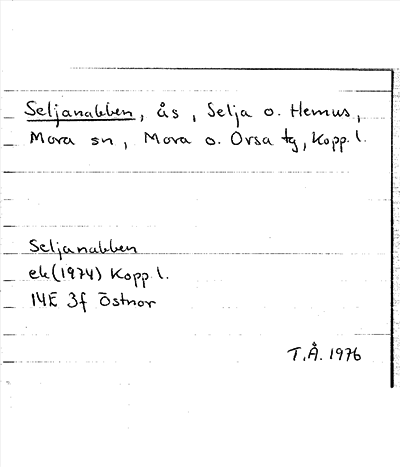 Seljanabben, ås, Selja o. Hemus,
Mora sn, Mora o. Orsa tg, Kopp. l.
Seljanabben
ek (1974) Kopp l.
14E 3f Östnor
T.Å. 1976